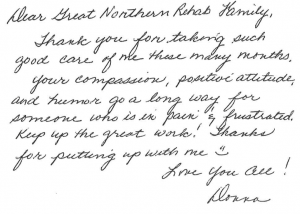 Dear Great Northern Rehab Family,
Thank you for taking such
good care of me these many months.
Your compassion, positive attitude,
and humor go a long way for
someone who is in pain & frustrated.
Keep up the great work! Thanks
for putting up with me ☺
Love You All!
Donna